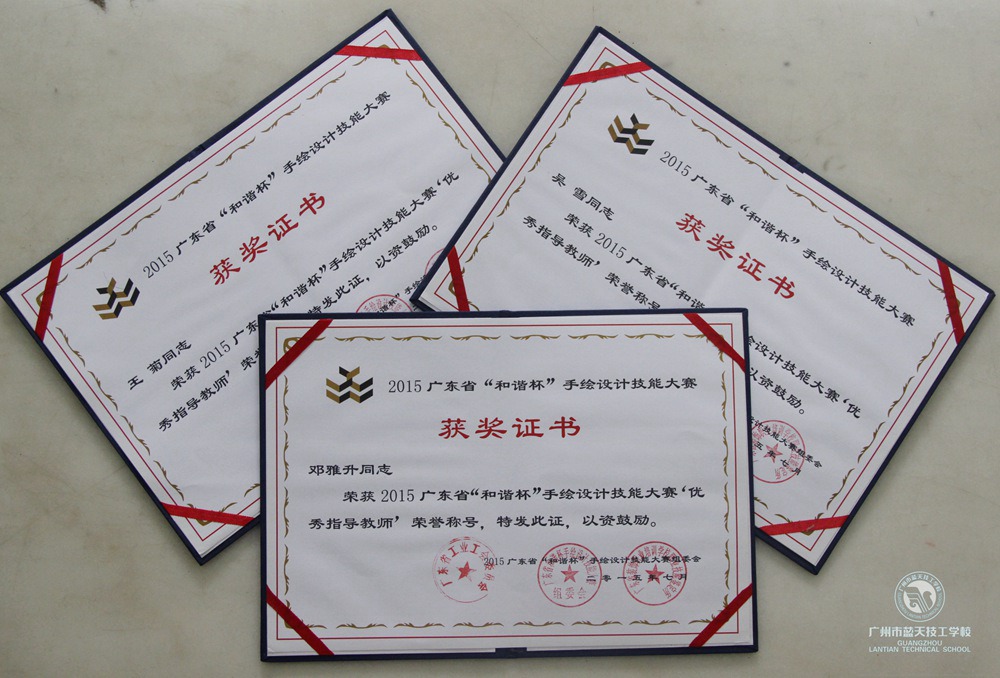 2015广东省“和谐杯”手绘设计技能大赛
获奖证书
王 菊同志
荣获2015广东省“和谐杯”手绘设计技能大赛‘优
秀指导教师’荣
特发此证，以资鼓励。
2015广东省“和谐杯”手绘设计技能大赛
获奖证书
吴 雪同志
荣获2015广东省“和谐
设计技能大赛‘优
秀指导教师’荣誉称号
以资鼓励。
设计技能大赛组委会
五年七月
2015广东省“和谐杯”手绘设计技能大赛
获奖证书
邓雅升同志
荣获2015广东省“和谐杯”手绘设计技能大赛‘优
秀指导教师’荣誉称号，特发此证，以资鼓励。
2015广东省“和谐杯”手绘设计技能大赛组委会
二零一五年七月
广东省工业工
组委会
广州市蓝天技工学校
GUANGZHOU
LANTIAN TECHNICAL SCHOOL